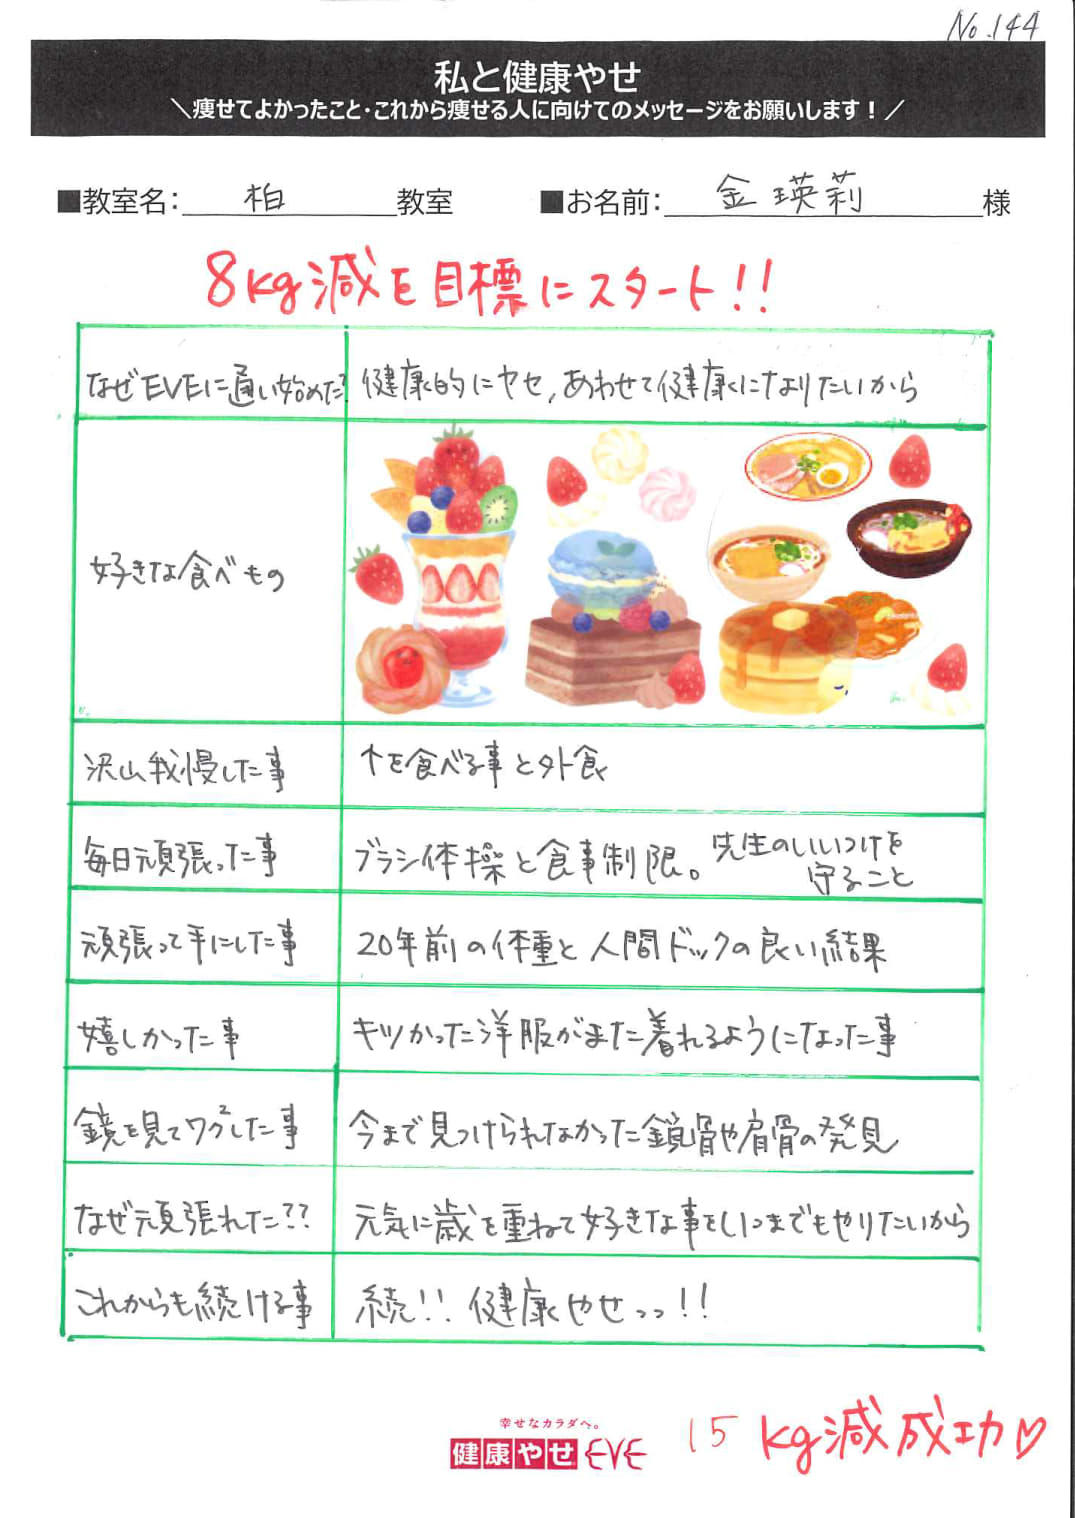 No.144
私と健康やせ
＼痩せてよかったこと・これから痩せる人に向けてのメッセージをお願いします！／
■教室名：柏教室 ■お名前：金瑛莉様
8kg減を目標にスタート!!
なぜEVEに通い始めた? 健康的にヤセ,あわせて健康になりたいから
好きな食べもの
沢山我慢した事 ↑を食べる事と外食
毎日頑張った事 ブラシ体操と食事制限。先生のいいつけを
守ること
頑張って手にした事 20年前の体重と人間ドックの良い結果
嬉しかった事 キツかった洋服がまた着れるようになった事
鏡を見てワク²した事 今まで見つけられなかった鎖骨や肩骨の発見
なぜ頑張れた?? 元気に歳を重ねて好きな事をいつまでもやりたいから
これからも続ける事 続!! 健康やせっっ!!
幸せなカラダへ。
健康やせEVE
15kg減成功♡